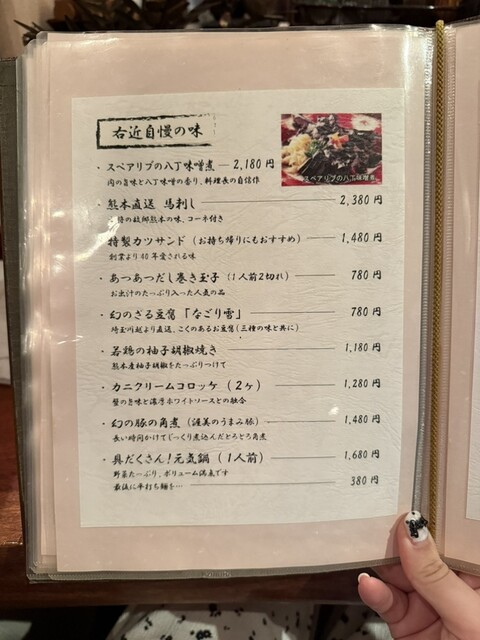 右近自慢の味
・スペアリブの八丁味噌煮 2,180 円
肉の旨味と八丁味噌の香り、料理長の自信作
スペアリブの八丁味噌煮
・熊本直送 馬刺し 2,380 円
の故郷熊本の味、コーネ付き
特製カツサンド（お持ち帰りにもおすすめ） 1,480 円
創業より40年愛される味
・あつあつだし巻き玉子（1人前2切れ） 780 円
お出汁のたっぷり入った人気の品
・幻のざる豆腐「なごり雪」 780 円
埼玉川越より直送、こくのあるお豆腐（三種の味と共に）
・若鶏の柚子胡椒焼き 1,180 円
熊本産柚子胡椒をたっぷりつけて
・カニクリームコロッケ（2ヶ） 1,280 円
蟹の旨味と濃厚ホワイトソースとの融合
・幻の豚の角煮（渥美のうまみ豚） 1,480 円
長い時間かけてじっくり煮込んだとろとろ角煮
・具だくさん！元気鍋（1人前） 1,680 円
野菜たっぷり、ボリューム満点です
最後に平打ち麺を… 380 円